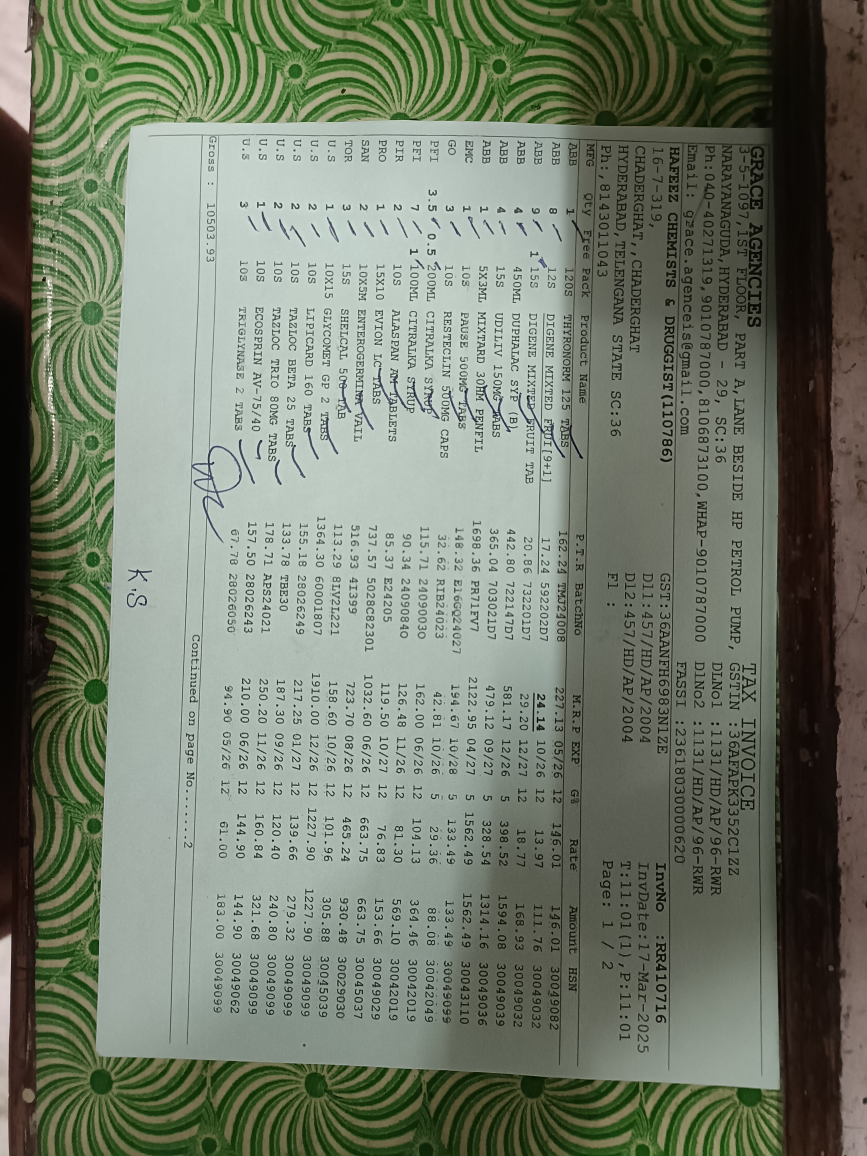 GRACE AGENCIES TAX INVOICE
3-5-1097,1ST FLOOR, PART A,LANE BESIDE HP PETROL PUMP, GSTIN :36AFAPK3352C1ZZ
NARAYANAGUDA,HYDERABAD - 29, SC:36 DLNo1 :1131/HD/AP/96-RWR
Ph:040-40271319,9010787000,8106873100,WHAP-9010787000 DlNo2 :1131/HD/AP/96-RWR
Email: grace.agenceis@gmail.com FASSI :23618030000620
HAFEEZ CHEMISTS & DRUGGIST(110786) GST:36AANFH6983N1ZE InvNo :RR410716
16-7-319, Dl1:457/HD/AP/2004 InvDate:17-Mar-2025
CHADERGHAT,,CHADERGHAT Dl2:457/HD/AP/2004 T:11:01(1),P:11:01
HYDERABAD,TELENGANA STATE SC:36 Fl : Page: 1 / 2
Ph:,8143011043
MFG Qty Free Pack Product Name P.T.R BatchNo M.R.P EXP G% Rate Amount HSN
ABB 1 120S THYRONORM 125 TABS 162.24 TMJ24008 227.13 05/26 12 146.01 146.01 30049082
ABB 8 12S DIGENE MIXTED FRUI[9+1] 17.24 592202D7 24.14 10/26 12 13.97 111.76 30049032
ABB 9 1 15S DIGENE MIXTED FRUIT TAB 20.86 732201D7 29.20 12/27 12 18.77 168.93 30049032
ABB 4 450ML DUPHALAC SYP (B) 442.80 722147D7 581.17 12/26 5 398.52 1594.08 30049039
ABB 4 15S UDILIV 150MG TABS 365.04 703021D7 479.12 09/27 5 328.54 1314.16 30049036
ABB 1 5X3ML MIXTARD 30HM PENFIL 1698.36 PR71FV7 2122.95 04/27 5 1562.49 1562.49 30043110
EMC 1 10S PAUSE 500MG TABS 148.32 E16GQ24027 194.67 10/28 5 133.49 133.49 30049099
GO 3 10S RESTECLIN 500MG CAPS 32.62 RIB24023 42.81 10/26 5 29.36 88.08 30042049
PFI 3.5 0.5 200ML CITRALKA SYRUP 115.71 24090030 162.00 06/26 12 104.13 364.46 30042019
PFI 7 1 100ML CITRALKA SYRUP 90.34 24090840 126.48 11/26 12 81.30 569.10 30042019
PIR 2 10S ALASPAN AM TABLETS 85.37 E24205 119.50 10/27 12 76.83 153.66 30049029
PRO 1 15X10 EVION LC TABS 737.57 5028C82301 1032.60 06/26 12 663.75 663.75 30045037
SAN 2 10X5M ENTEROGERMINA VAIL 516.93 4I399 723.70 08/26 12 465.24 930.48 30029030
TOR 3 15S SHELCAL 500 TAB 113.29 8LV2L221 158.60 10/26 12 101.96 305.88 30045039
U.S 1 10X15 GLYCOMET GP 2 TABS 1364.30 60001807 1910.00 12/26 12 1227.90 1227.90 30049099
U.S 2 10S LIPICARD 160 TABS 155.18 28026249 217.25 01/27 12 139.66 279.32 30049099
U.S 2 10S TAZLOC BETA 25 TABS 133.78 TBE30 187.30 09/26 12 120.40 240.80 30049099
U.S 2 10S TAZLOC TRIO 80MG TABS 178.71 APS24021 250.20 11/26 12 160.84 321.68 30049099
U.S 1 10S ECOSPRIN AV-75/40 157.50 28026243 210.00 06/26 12 144.90 144.90 30049062
U.S 3 10S TRIGLYNASE 2 TABS 67.78 28026050 94.90 05/26 12 61.00 183.00 30049099
Gross : 10503.93
Continued on page No.......2
K.S